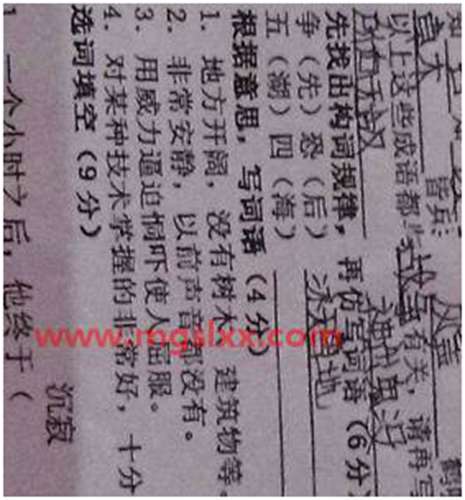 皆兵
以上这些成语都与战争有关，请再写
先找出构词规律，再仿写词语（6分
神出鬼没
争（先）恐（后） 冰天雪地
五（湖）四（海）
根据意思，写词语（4分）
1. 地方开阔，没有树木、建筑物等。
2. 非常安静，以前声都没有。
3. 用威力逼迫恫吓使人屈服。
4. 对某种技术掌握的非常好，十分
选词填空（9分）
沉寂
1 一个小时之后，他终于（
www.mgslxx.com